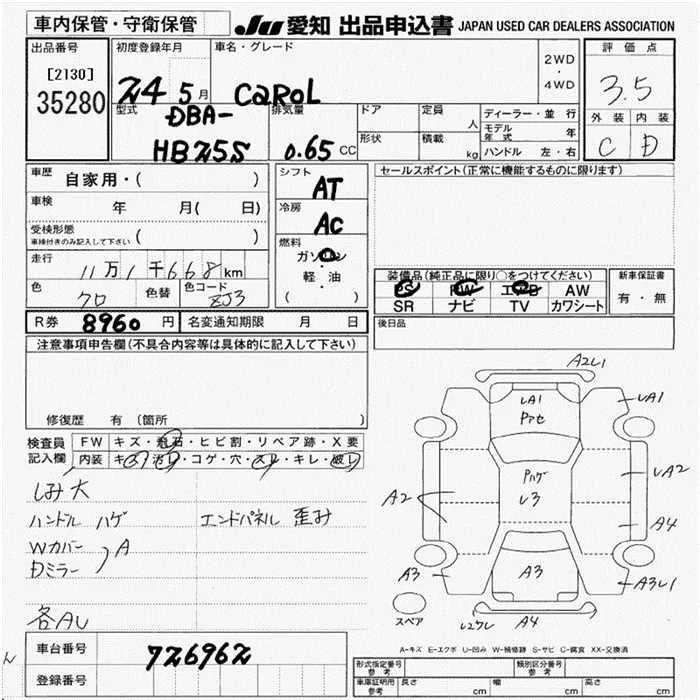 車内保管・守衛保管 JU 愛知 出品申込書 JAPAN USED CAR DEALERS ASSOCIATION
出品番号 初度登録年月 車名・グレード 2WD・4WD 評価点
[2130]
35280 24 5月 CAROL 3.5
型式 DBA-HB25S 排気量 0.65 CC ドア 定員 人 ディーラー・並 行
形状 積載 kg モデル年式 年
ハンドル 左・右
外装 内装
C D
車歴 自家用・( ) シフト AT セールスポイント(正常に機能するものに限ります)
車検 年 月( 日) 冷房 AC
受検形態 ( )
車検付きのみ記入して下さい
燃料 ガソリン
軽・油
( )
走行 11万1千668km
色 クロ 色替 色コード ZJ3
装備品(純正品に限り○をつけてください) 新車保証書
PS PW エアB AW 有・無
SR ナビ TV カワシート
R券 8960円 名変通知期限 月 日 後日品
注意事項申告欄(不具合内容等は具体的に記入して下さい)
修復歴 有 (箇所 )
検査員記入欄 FW キズ・飛石・ヒビ割・リペア跡・X要
内装 キズ・汚レ・コゲ・穴・スレ・キレ・破レ
しみ大
ハンドル ハゲ エンドパネル 歪み
Wカバー
Dミラー A
各AU
A2L1
LA1
UA1
Pアセ
Pハゲ
L3
LA2
A2
A4
A3
A3
A3L1
A4
スペア
A-キズ E-エクボ U-凹み W-補修跡 S-サビ C-腐食 XX-交換済
車台番号 726962
登録番号
形式指定番号 参考 類別区分番号 参考
車庫証明用 参考 長さ cm 幅 cm 高さ cm